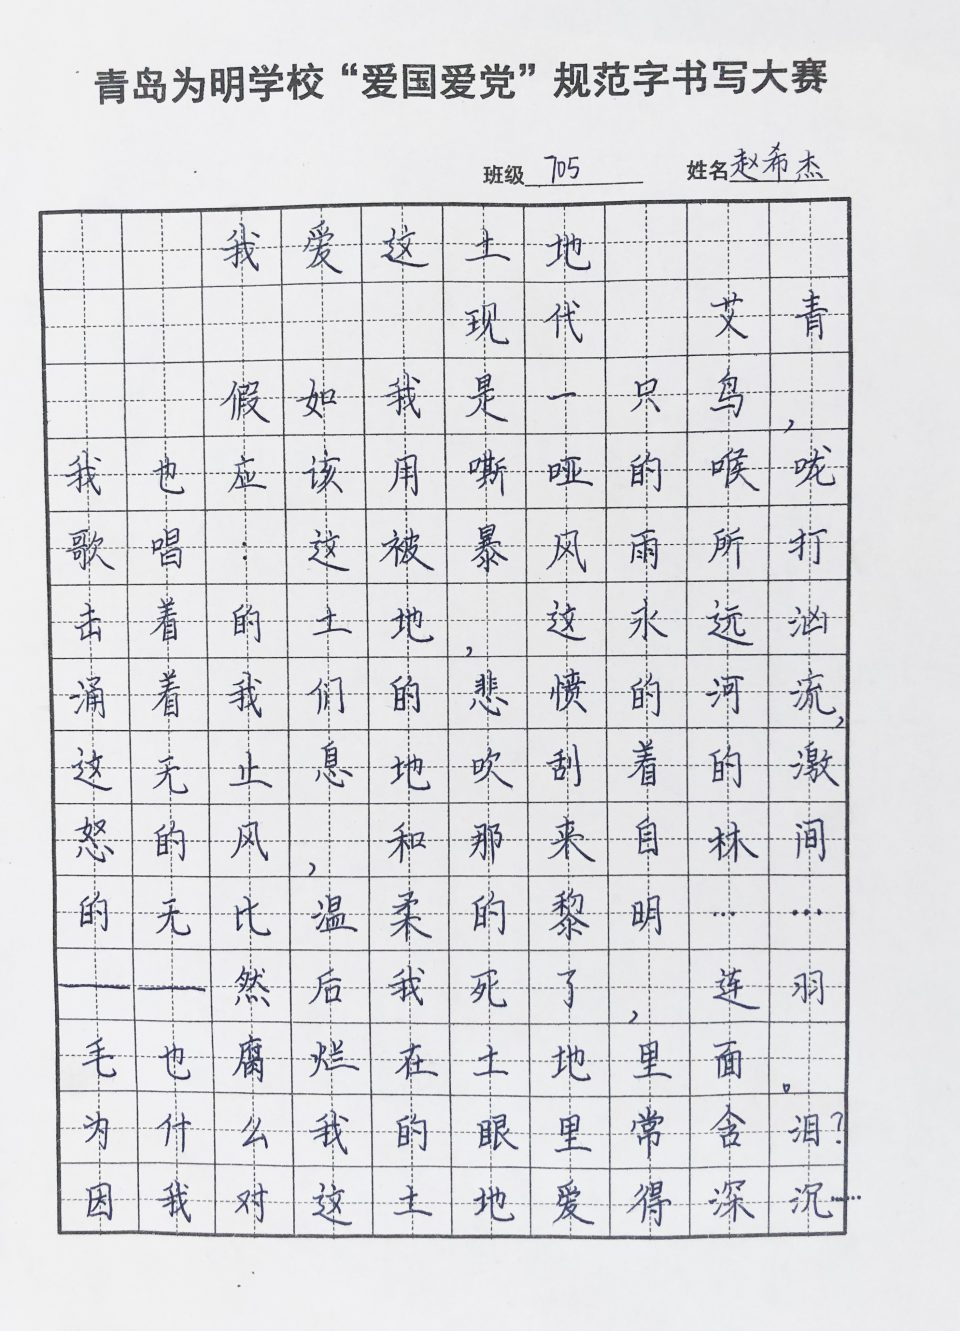 青岛为明学校“爱国爱党”规范字书写大赛
班级 705 姓名 赵希杰
我爱这土地
现代 艾青
假如我是一只鸟，
我也应该用嘶哑的喉咙
歌唱：这被暴风雨所打
击着的土地，这永远汹
涌着我们的悲愤的河流，
这无止息地吹刮着的激
怒的风，和那来自林间
的无比温柔的黎明……
——然后我死了，连羽
毛也腐烂在土地里面。
为什么我的眼里常含泪？
因我对这土地爱得深沉……